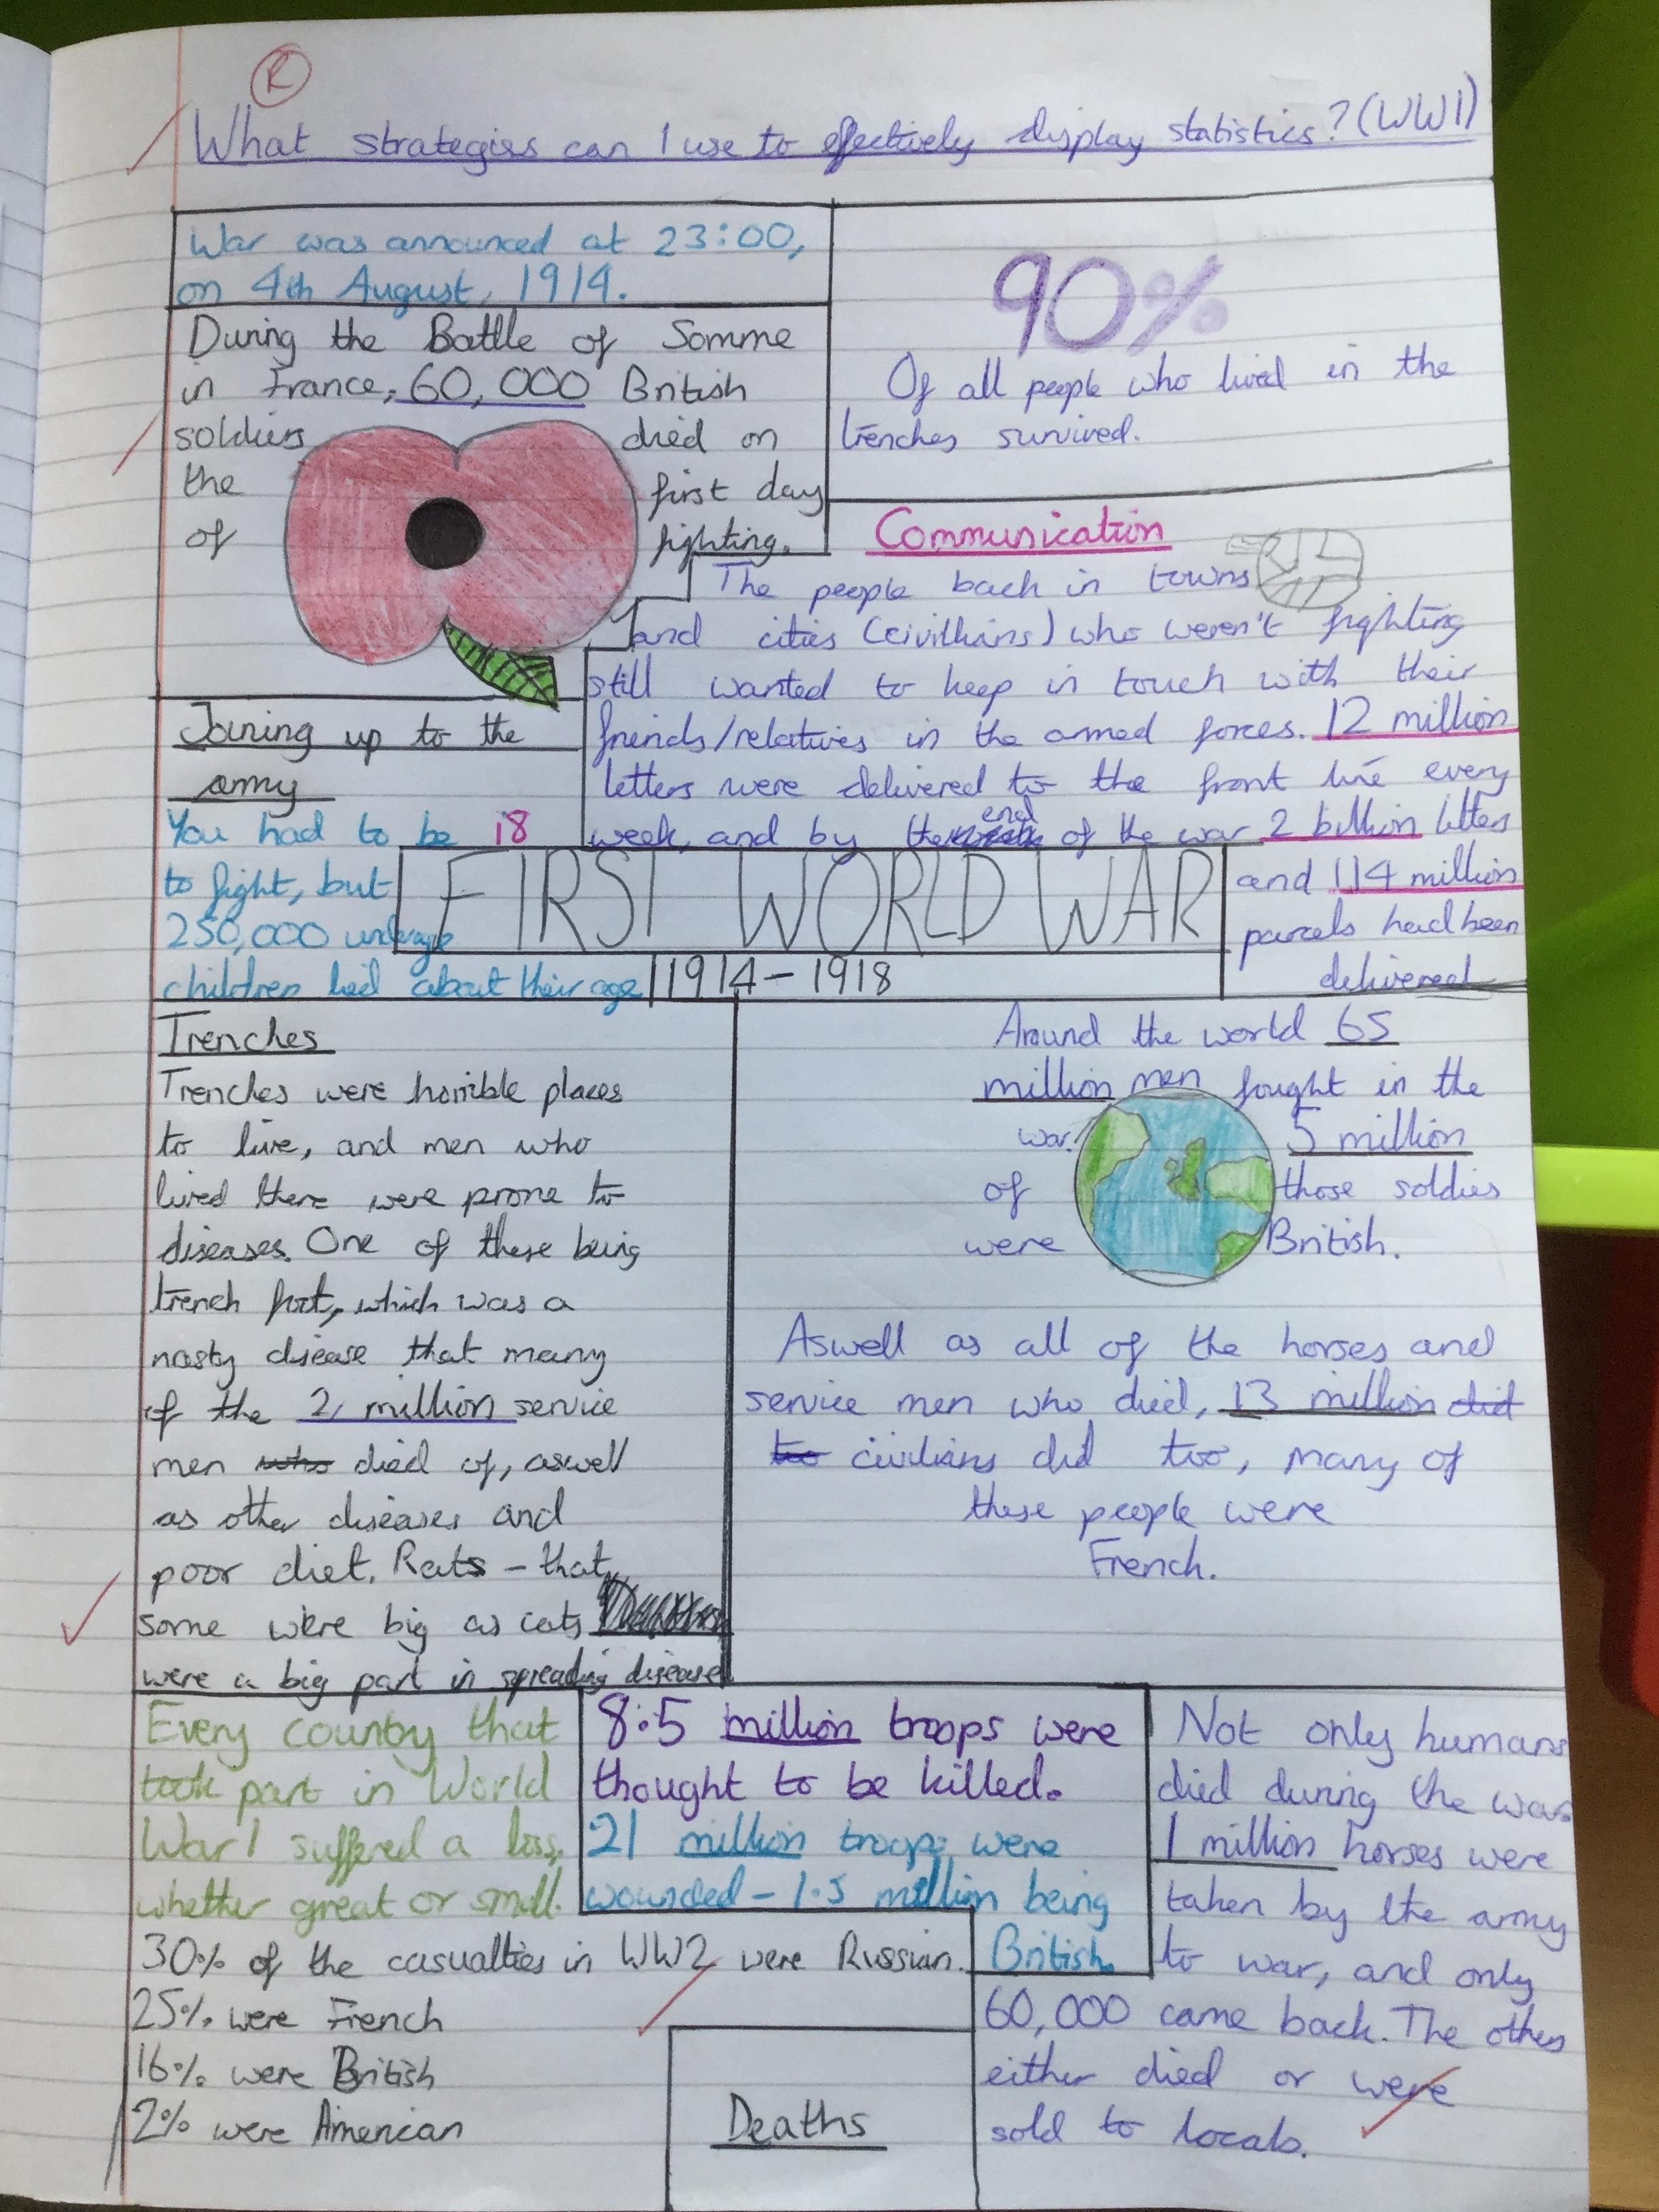 K
What strategies can I use to effectively display statistics? (WW1)
War was announced at 23:00,
on 4th August, 1914.
During the Battle of Somme
in France, 60,000 British
soldiers died on
the first day
of fighting.
90%
Of all people who lived in the
trenches survived.
Communication
The people back in towns
and cities (civillians) who weren't fighting
still wanted to keep in touch with their
friends/relatives in the armed forces. 12 million
letters were delivered to the front line every
week, and by the end of the war 2 billion letters
and 114 million
parcels had been
delivered
Joining up to the
army
You had to be 18
to fight, but
250,000 underage
children lied about their age
FIRST WORLD WAR
1914-1918
Trenches
Trenches were horrible places
to live, and men who
lived there were prone to
diseases. One of these being
trench foot, which was a
nasty disease that many
of the 2 million service
men who died of, aswell
as other diseases and
poor diet. Rats - that
some were big as cats
were a big part in spreading disease
Around the world 65
million men fought in the
war! 5 million
of those soldies
were British.
Aswell as all of the horses and
service men who died, 13 million did
too civilians did too, many of
these people were
French.
Every country that
took part in World
War 1 suffered a loss,
whether great or small.
30% of the casualties in WW2 were Russian.
25% were French
16% were British
2% were American
8.5 million troops were
thought to be killed.
21 million troops were
wounded - 1.5 million being
British.
Deaths
Not only humans
died during the war.
1 million horses were
taken by the army
to war, and only
60,000 came back. The others
either died or were
sold to locals.